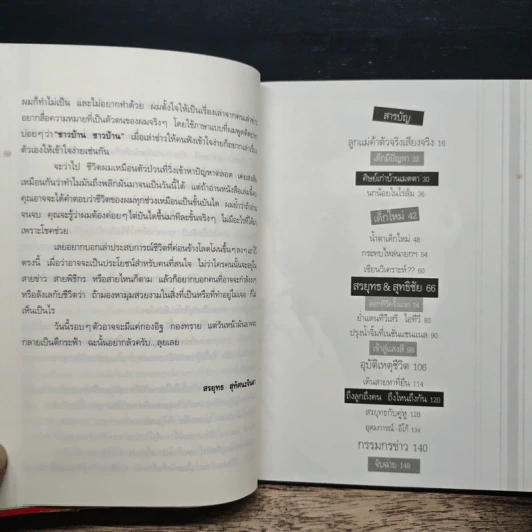 ผมก็ทำไม่เป็น และไม่อยากทำด้วย ผมตั้งใจให้เป็นเรื่องเล่าจากคนเล่าข่าว
อยากสื่อความหมายที่เป็นตัวตนของผมจริงๆ โดยใช้ภาษาแบบที่ผมพูดติดปาก
บ่อยๆว่า "ชาวบ้าน ชาวบ้าน" เมื่อเล่าข่าวให้คนฟังเข้าใจง่ายก็อยากเล่าเรื่อง
ตัวเองให้เข้าใจง่ายเช่นกัน
จะว่าไป ชีวิตผมเหมือนตัวป่วนที่วิ่งเข้าหาปัญหาตลอด
เหมือนกันว่าทำไมมันถึงพลิกผันมาจนเป็นวันนี้ได้ แต่ถ้าอ่านหนังสือเล่มนี้
คุณอาจจะได้คำตอบว่าชีวิตของผมทุกช่วงเหมือนเป็นขั้นบันได ผมย้ำว่าถ้าอ่าน
จนจบ คุณจะรู้ว่าผมต้องค่อยๆไต่บันไดขึ้นมาทีละขั้นจริงๆ ไม่มีอะไรที่ได้มา
เพราะโชคช่วย
เลยอยากบอกเล่าประสบการณ์ชีวิตที่ค่อนข้างโลดโผนขึ้นๆลงๆเอาไว้
ตรงนี้ เผื่อว่าอาจจะเป็นประโยชน์สำหรับคนที่สนใจ ไม่ว่าใครคนนั้นจะอยู่ใน
สายข่าว สายพิธีกร หรือสายไหนก็ตาม แล้วก็อยากบอกคนที่อาจจะกำลังงงๆ
หรือลังเลกับชีวิตว่า ถ้ามองหามุมสวยงามในสิ่งที่เป็นหรือที่ทำอยู่ไม่เจอ ก็ไม่
เห็นเป็นไร
วันนี้รอบๆตัวอาจจะมีแค่กองอิฐ กองทราย แต่วันหน้ามันอาจจะ
กลายเป็นตึกระฟ้า ฉะนั้นอย่ากลัวครับ...ลุยเลย
สรยุทธ สุทัศนะจินดา
สารบัญ
ลูกแม่ค้าตัวจริงเสียงจริง 16
เด็กมีปัญหา 22
ศิษย์เก่าบ้านเมตตา 30
นกน้อยในไร่ส้ม 36
เด็กใหม่ 42
น้ำตาเด็กใหม่ 48
กระทบไหล่นายกฯ 54
เซียนวิเคราะห์?? 60
สรยุทธ & สุทธิชัย 66
ออกทีวีครั้งแรก 74
ย่ำแดนทีวีเสรี ไอทีวี 80
ปรุงน้ำจิ้มที่เนชั่นแชนแนล 90
เข้าสู่แสงสี 98
อุบัติเหตุชีวิต 106
เดินสายหาที่ยืน 114
ถึงลูกถึงคน ถึงไหนถึงกัน 120
สรยุทธกับคู่หู 128
อุดมการณ์-อีโก้ 134
กรรมกรข่าว 140
จับฉ่าย 148